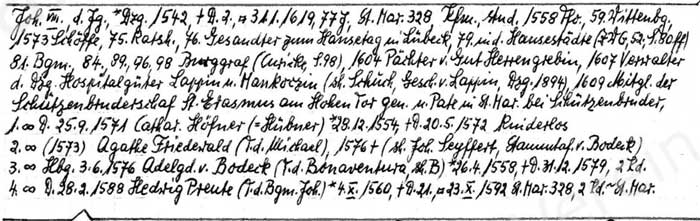 Joh. III. d. Jg., *Dzg. 1542, + D. 2., ▭ 31.1.1619, 77J., St. Mar. 328, Kfm., stud. 1558 Tho., 59. Wittenbg.,
1573 Schöffe, 75. Ratsh., 76. Gesandter zum Hansetag in Lübeck, 79. in d. Hansestädte (ZWG, 52, S. 80ff)
81. Bgm., 84., 89, 96, 98 Burggraf (Curicke, S. 98), 1604 Pächter v. Gut Herrengrebin, 1607 Verwalter
d. Dzg. Hospitalgüter Lappin u. Mankoczin (sh. Schuch, Gesch. v. Lappin, Dzg. 1894), 1609 Mitgl. der
Schützenbruderschaf St. Erasmus am Hohen Tor gen. u. Pate in St. Mar. bei Schützenbruder,
1. ∞ D. 25.9.1571 Cathar. Höfner (= Hübner) *28.12.1554, + D. 20.5.1572 Kinderlos
2. ∞ (1573) Agathe Friedewald (T. d. Michael), 1576 + (sh. Joh. Seyffert, Stammtaf. v. Bodeck)
3. ∞ Hbg. 3.6.1576 Adelgd. v. Bodeck (T. d. Bonaventura, sh. B) *26.4.1558, + D. 31.12.1579, 2 Kd.
4. ∞ D. 28.2.1588 Hedwig Preute (T. d. Bgm. Joh.) *4.X.1560, + D. 21., ▭ 23.X.1592 St. Mar. 328, 2 Kd ~ St. Mar.